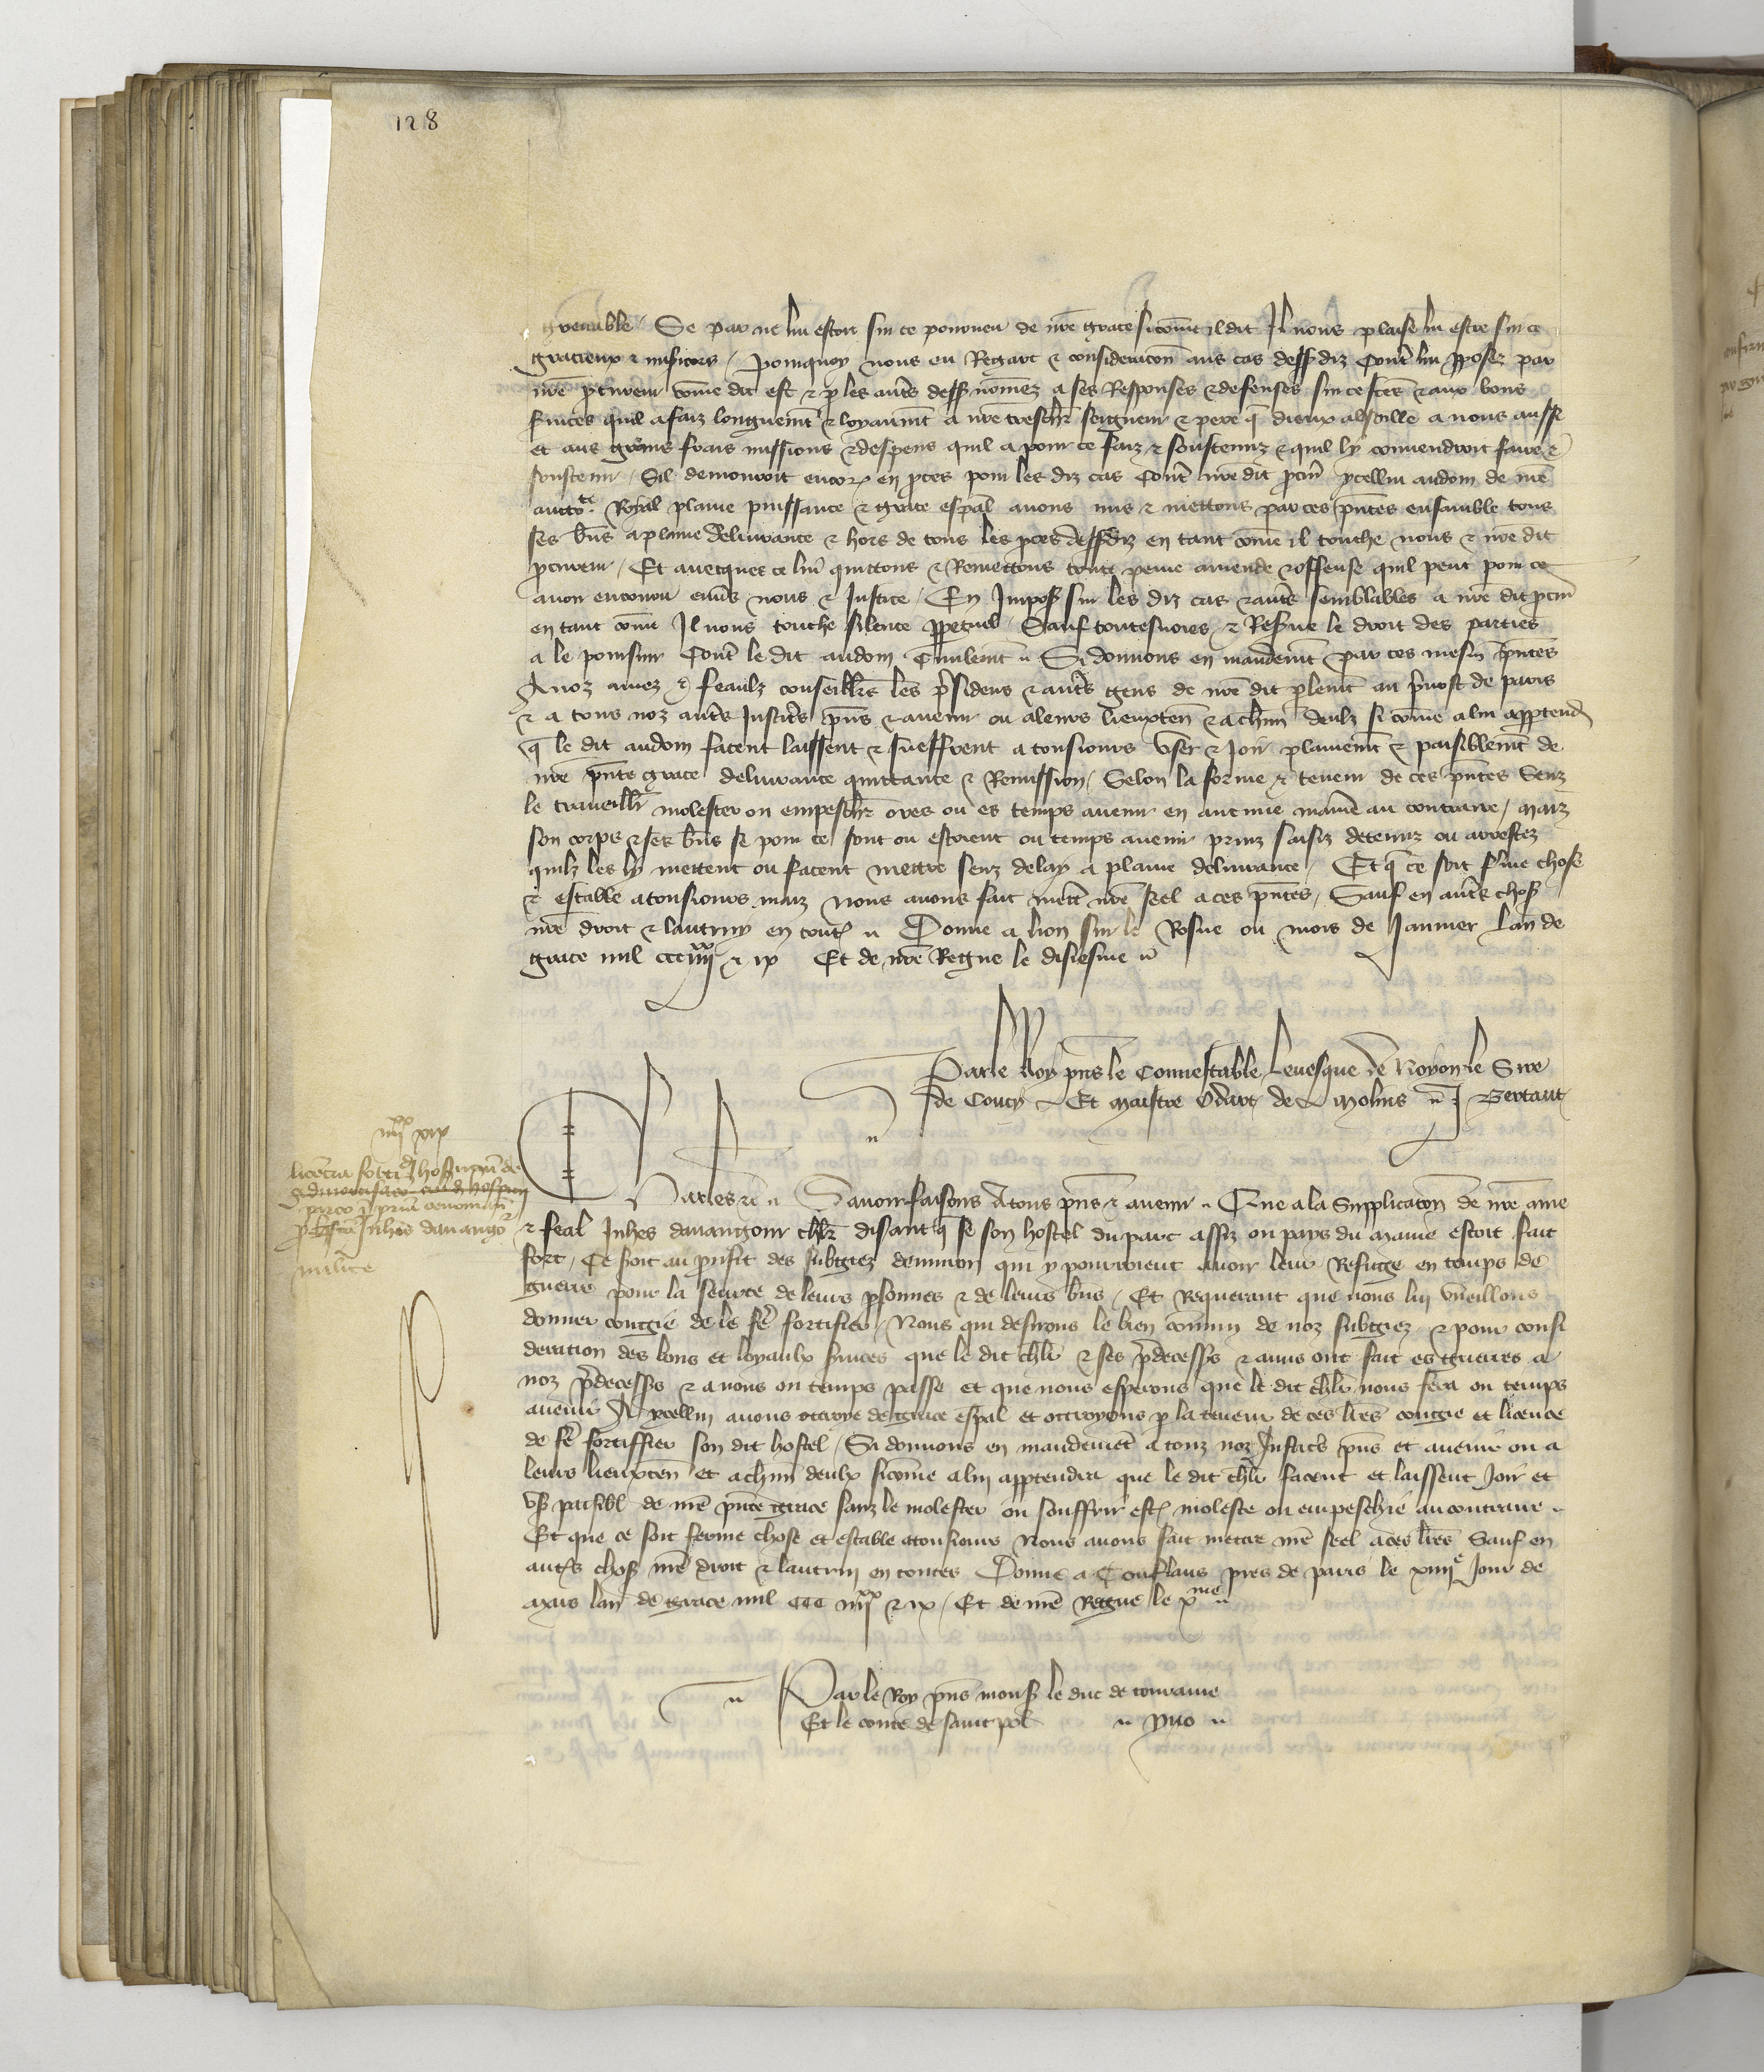 128
greuable Se par ne lui estoit sur ce pourueu de nre grace si comme il dit Il nous plaise lui estre sur ce
gracieux & misicors / Pourquoy nous eu Regart & consideracon aus cas dessusdiz Contre lui pposez par
nre pcureur come dit est & p les autres dess nomez a ses Responses & defenses sur ce fctes & aux bons
seruices quil a faiz longuemt & loyaumt a nre treschr seigneur & pere q dieux absoille a nous aussi
et aus grans frais missions & despens quil a pour ce faiz & soustenuz & quil ly conuendroit faire &
soustenir / Sil demouroit encores en pces pour les diz cas Contre nre dit pcur ycellui audom de nre
auctorite Royal plaine puissance & grace espal auons mis & mettons par ces pntes ensamble tous
ses bns a plaine deliurance & hors de tous les pces dessusdiz en tant come il touche nous & nre dit
pcureur / Et auecques ce lui quittons & Remettons toute peine amende & offense quil peut pour ce
auoir encouru enuers nous & Justice / En Imposant sur les diz cas & autres semblables a nre dit pcur
en tant come Il nous touche silence ppetuel Sauf toutesuoies & Reserue le droit des parties
a le poursuir Contre le dit audom Ciuilemt Si donnons en mandemt par ces mesmes pntes
A noz amez & feaulz conseillers les presidens & autres gens de nre dit plemt au preuost de paris
& a tous noz autres Justiciers pns & auenir ou a leurs lieuxten & a chun deulz si come a lui apptendra
q le dit audom facent laissent & sueffrent a tousiours vser & Joir plainemt & paisiblemt de
nre pnte grace deliurance quittance & Remission / Selon la forme & teneur de ces pntes Senz
le trauaillr molester ou empeschr ores ou es temps auenir en aucune maniere au contraire / maiz
son corps & ses bns se pour ce sont ou estoient ou temps auenir prinz saisiz detenuz ou arrestez
quilz les ly mettent ou facent mettre senz delay a plaine deliurance / Et q ce soit ferme chose
& estable a tousiours maiz Nous auons fait mettre nre seel a ces pntes / Sauf en autres choses
nre droit & lautruy en toutes Donne a lion sur le Rosne ou mois de Januier Lan de
grace mil ccc iiiixx & ix Et de nre Regne le disiesme
Par le Roy pns le Connestable Leuesque de Noyon le Sire
de Coucy Et maistre Odart de Molins J Bertaut
iiiixx xix
licencia fortificandi hospicium de
parco in pria cenoman
p Juhes dauaugor
milite
Charles &c Sauoir faisons A tous pns & auenir Que a la Supplicaton de nre ame
& feal Juhes dauaugour chlr disant q se son hostel du parc assiz ou pays du maine estoit fait
fort / Ce soit au prufit des subgiez denuiron qui y pourroient auoir leur Refuge en temps de
guerre pour la seurte de leurs psonnes & de leurs bns / Et Requerant que nous lui vueillons
donner congie de le fere fortifier / Nous qui desirons le bien comun de noz subgiez & pour consi
deration des bons et loyaulx seruices que le dit chlr & ses predecesseurs & amis ont fait es guerres a
noz predecesseurs & a nous ou temps passe et que nous esperons que le dit chlr nous fera ou temps
auenir A ycellui auons ottroye de grace espal et ottroyons p la teneur de ces lres congie et licence
de fere fortiffier son dit hostel / Si donnons en mandement a touz noz Justiciers pns et auenir ou a
leurs lieuxten et a chun deulx si come a lui apptendra que le dit chlr facent et laissent Joir et
vser paisibl de nre pnte grace sanz le molester ou souffrir estre moleste ou empeschie au contraire
Et que ce soit ferme chose et estable a tousiours Nous auons fait mettre nre seel a ces lres Sauf en
autres choses nre droit & lautruy en toutes Donne a Conflans pres de paris le xiiiie Jour de
mars lan de grace mil ccc iiiixx & ix / Et de nre Regne le xme
Par le Roy pns mons le duc de touraine
Et le conte de saint pol yuo